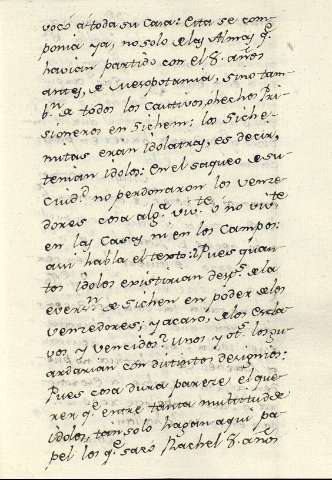 vocó a toda su Casa: Esta se com-
ponia ya, no solo de las Almas q.e
havian partido con el 8. años
antes, de Mesopotamia, sino tam-
b.n de todos los Cautivos, ò hechos Pri-
sioneros en Sichem: los Siche-
mitas eran idolatras, es decir,
tenian idolos: En el saqueo de su
Ciud.d no perdonaron los vence-
dores cosa alg.a viv.te o no viv.te
en las Casas ni en los Campos:
aqui habla el texto: Pues quan-
tos idolos existirian desp.s de la
de Sichen en poder de los
vencedores; y acaso, de los escla-
vos y vencidos? unos y ot.s los gu-
ardarian con distintos designios:
Pues cosa dura parece el que-
rer q.e entre tanta multitud de
idolos, tan solo hagan aqui pa-
pel los q.e sacó Rachel 8. años